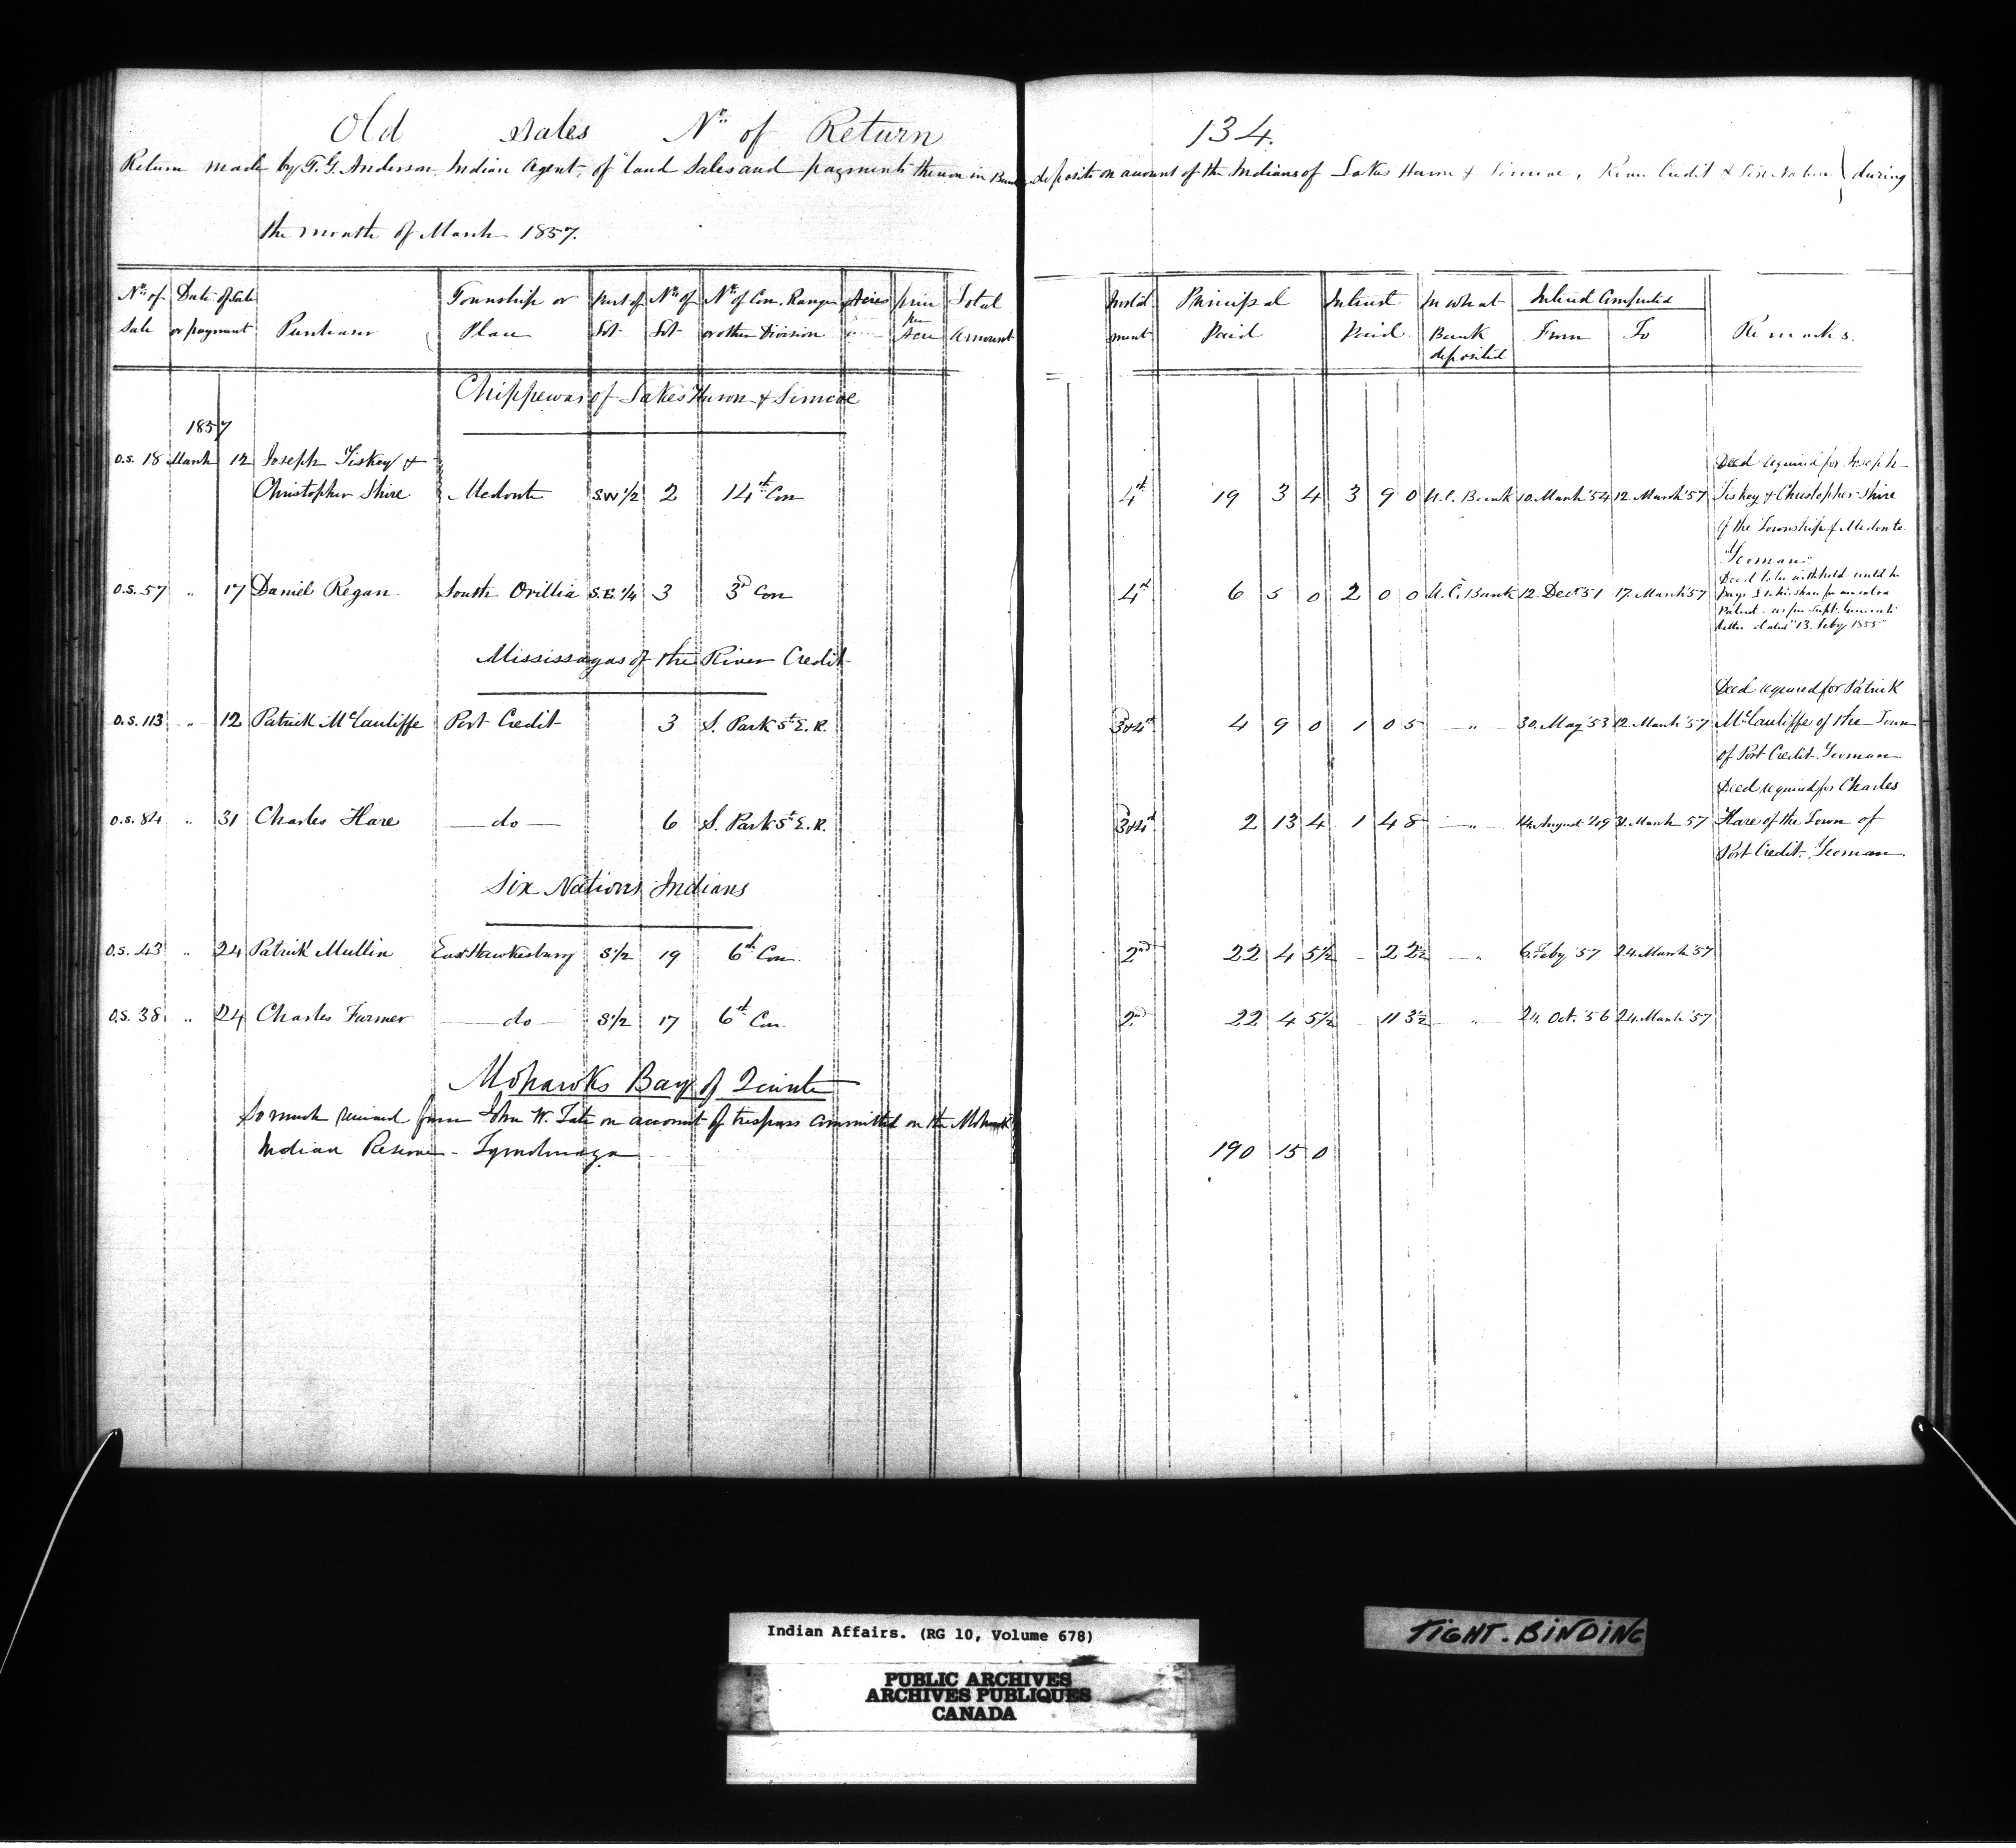 Old Sales No. of Return 134.
Return made by T. G. Anderson, Indian Agent, of Land Sales and payments thereon in Bank deposits on account of the Indians of Lakes Huron & Simcoe, River Credit & Six Nation } during
the month of March 1857.
No. of Sale | Date of Sale or payment | Purchaser | Township or Place | Part of Lot | No. of Lot | No. of Con. Range or other Division | Acres | price per Acre | Total Amount | Instalment | Principal Paid | Interest Paid | In what Bank deposited | Interest Computed From | To | Remarks.
Chippewas of Lakes Huron & Simcoe
1857
O.S. 18 March 12 Joseph Tiskey & Deed required for Joseph
Christopher Shire Medonte SW 1/2 2 14th Con 4th 19 3 4 3 9 0 U.C. Bank 10. March '54 12. March '57 Tiskey & Christopher Shire
of the Township of Medonte
"Yeoman"
O.S. 57 " 17 Daniel Regan South Orillia S.E. 1/4 3 3d Con 4th 6 5 0 2 0 0 U.C. Bank 12. Decr '51 17. March '57 Deed to be withheld until he
pays his share for an extra
Patent - as per Supt. General's
letter dated "13. Feby 1855"
Mississagas of the River Credit
Deed required for Patrick
O.S. 113 " 12 Patrick McCauliffe Port Credit 3 S. Park St E. R. 3d & 4th 4 9 0 1 0 5 " 30. May '53 12. March '57 McCauliffe of the Town
of Port Credit. Yeoman
Deed required for Charles
O.S. 84 " 31 Charles Hare do 6 S. Park St E. R. 3d & 4th 2 13 4 1 4 8 " 14. August '49 31. March 57 Hare of the Town of
Port Credit. Yeoman
Six Nations Indians
O.S. 43 " 24 Patrick Mullin East Hawkesbury S 1/2 19 6th Con. 2nd 22 4 5 1/2 - 2 2 1/2 " 6. Feby '57 24. March '57
O.S. 38 " 24 Charles Farmer do S 1/2 17 6th Con. 2nd 22 4 5 1/2 - 11 3 1/2 " 24. Oct. '56 24. March '57
Mohawks Bay of Quinte
So much received from John W. Tate on account of trespass committed on the Mohawk
Indian Reserve - Tyendinaga 190 15 0
Indian Affairs. (RG 10, Volume 678)
PUBLIC ARCHIVES
ARCHIVES PUBLIQUES
CANADA
TIGHT. BINDING